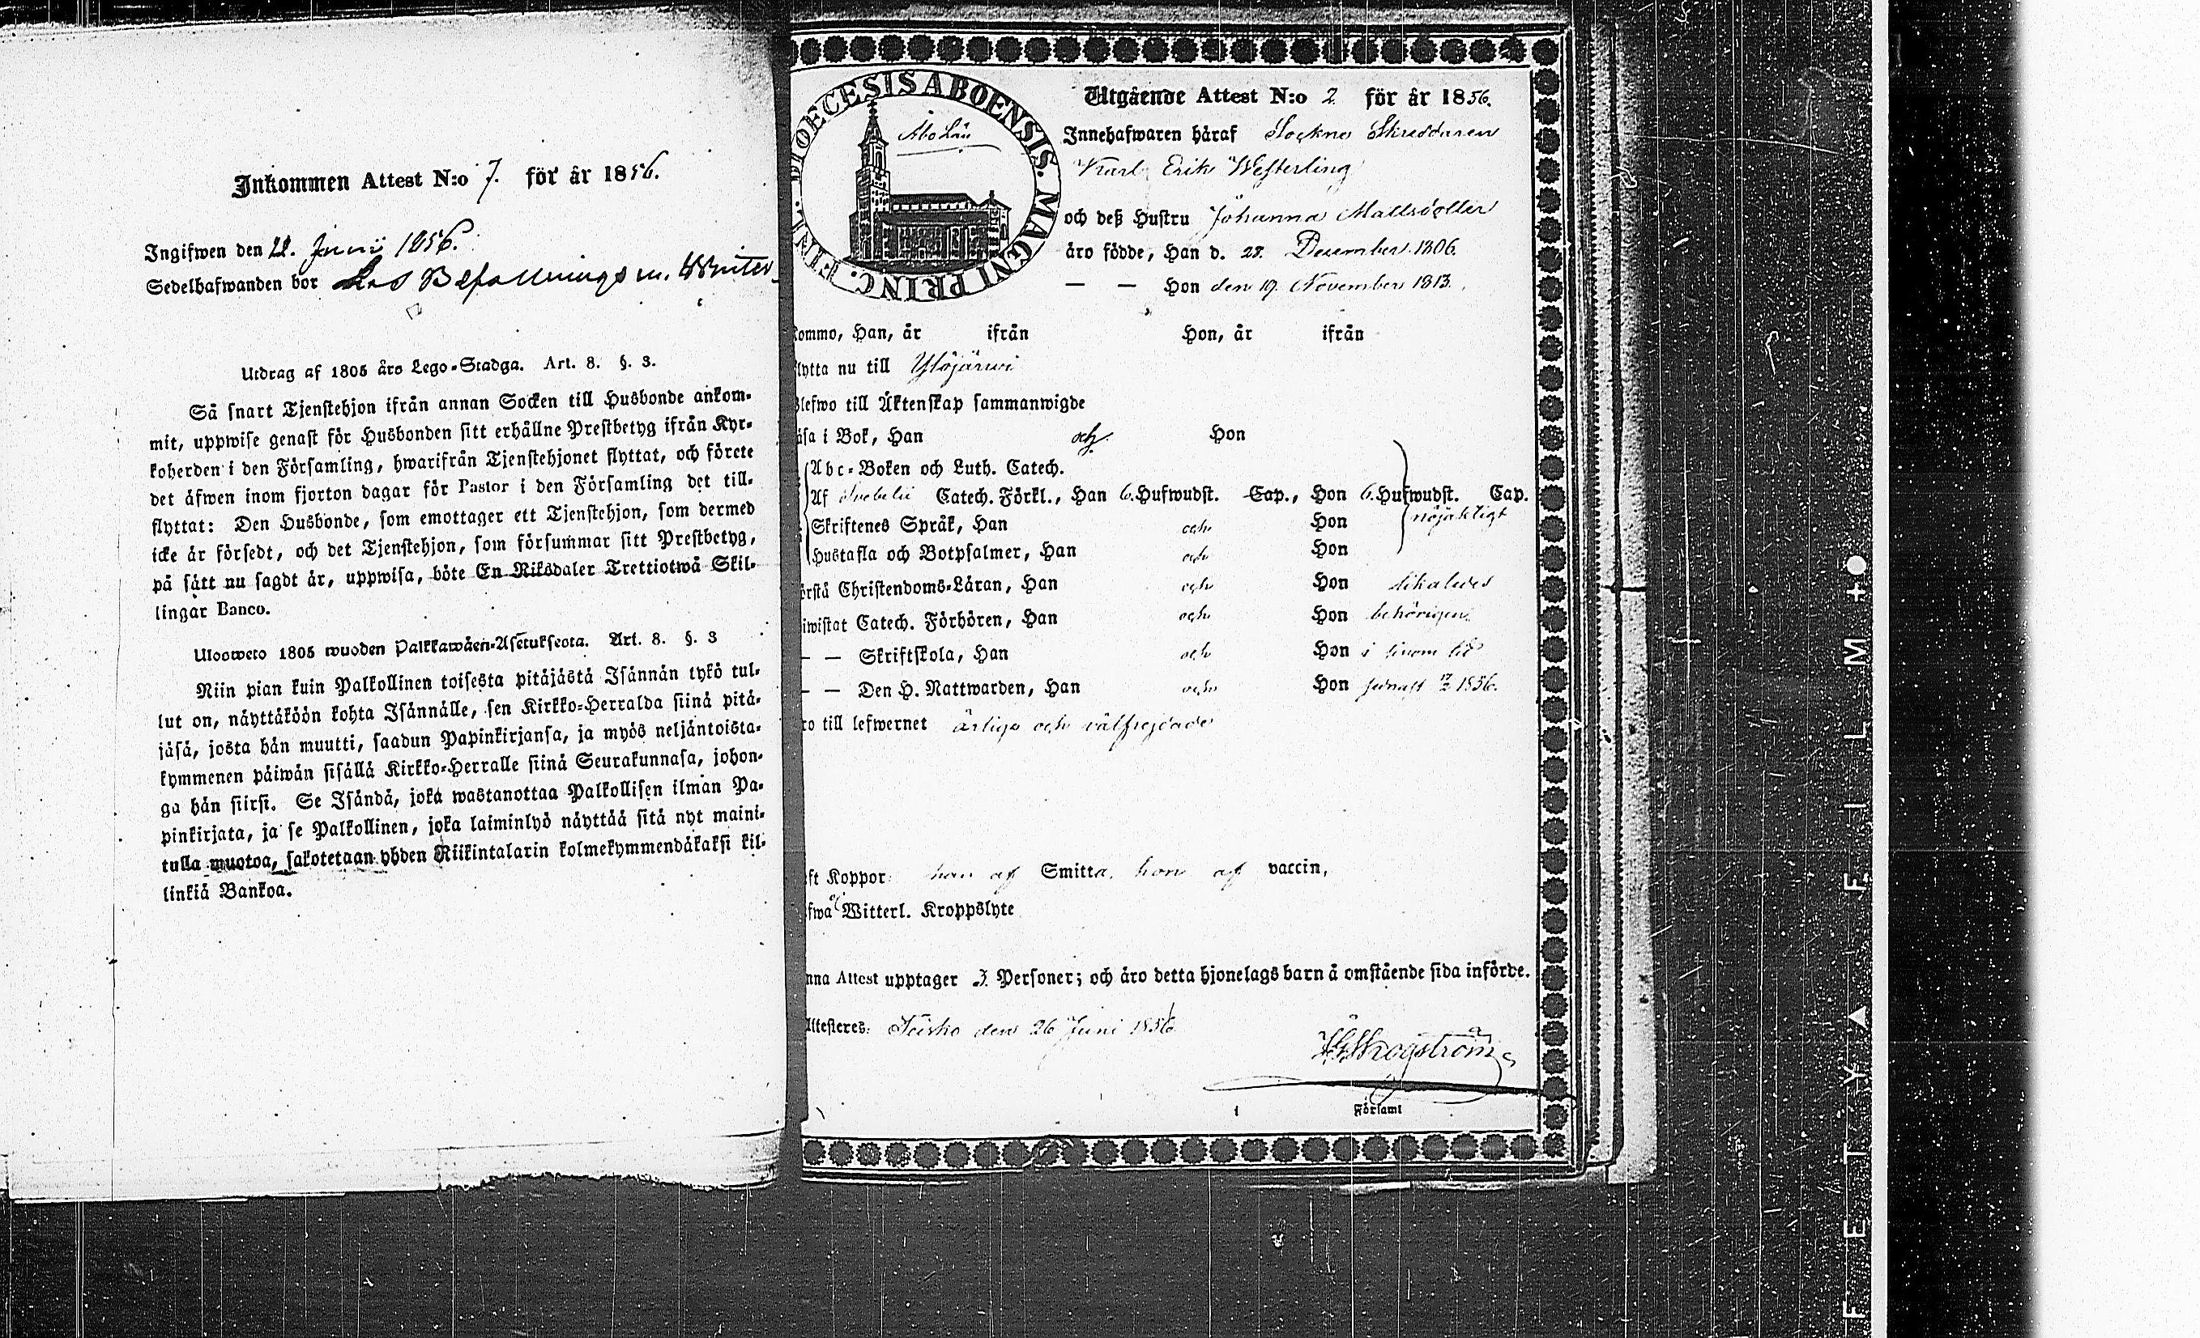 Inkommen Attest N:o 7. för år 1856.
Ingifwen den Junii 1856.
Sedelhafwanden bor hos Befallningsm.
Utdrag af 1805 års Lego-Stadga. Art. 8. §. 3.
Så snart Tjenstehjon ifrån annan Socken till Husbonde ankom-
mit, uppwise genast för Husbonden sitt erhållne Prestbetyg ifrån Kyr-
koherden i den Församling, hwarifrån Tjenstehjonet flyttat, och förete
det äfwen inom fjorton dagar för Pastor i den Församling det till-
flyttat: Den Husbonde, som emottager ett Tjenstehjon, som dermed
icke är försedt, och det Tjenstehjon, som försummar sitt Prestbetyg,
på sätt nu sagdt är, uppwisa, böte En Riksdaler Trettiotwå Skil-
lingar Banco.
Ulosweto 1805 wuoden Palkkawäen-Asetuksesta. Art. 8. §. 3
Niin pian kuin Palkollinen toisesta pitäjästä Isännän tykö tul-
lut on, näyttäköön kohta Isännälle, sen Kirkko-Herralda siinä pitä-
jäsä, josta hän muutti, saadun Papinkirjansa, ja myös neljäntoista-
kymmenen päiwän sisällä Kirkko-Herralle siinä Seurakunnasa, johon-
ga hän siirsi. Se Isändä, joka wastanottaa Palkollisen ilman Pa-
pinkirjata, ja se Palkollinen, joka laiminlyö näyttää sitä nyt maini-
tulla muotoa, sakotetaan yhden Riikintalarin kolmekymmendäkaksi kil-
linkiä Bankoa.
DIOECESIS ABOENSIS. MAGNI PRINC. FINL.
Åbo Län
Utgående Attest N:o 2. för år 1856.
Innehafwaren häraf Sockne Skreddaren
Karl Erik Westerling
och deß Hustru Johanna Mattsdotter
äro födde, Han d. 28. December 1806.
— — Hon den 19. November 1813.
Kommo, Han, år ifrån Hon, år ifrån
flytta nu till Ylöjärwi
Blefwo till Äktenskap sammanwigde
läsa i Bok, Han och Hon
Abc-Boken och Luth. Catech.
Af Svebelii Catech. Förkl., Han 6. Hufwudst. Cap., Hon 6. Hufwudst. Cap.
Skriftenes Språk, Han och Hon nöjaktigt
Hustafla och Botpsalmer, Han och Hon
förstå Christendoms-Läran, Han och Hon likaledes
biwistat Catech. Förhören, Han och Hon behörigen
— — Skriftskola, Han och Hon i sinom tid
— — Den H. Nattwarden, Han och Hon sednast 1856.
äro till lefwernet ärliga och välfrejdade
haft Koppor han af Smitta, hon af vaccin,
hafwa ej Witterl. Kroppslyte
Denna Attest upptager 3. Personer; och äro detta hjonelags barn å omstående sida införde.
Attesteres: Teisko den 26 Juni 1856
Förlamt
FETYÄFILM